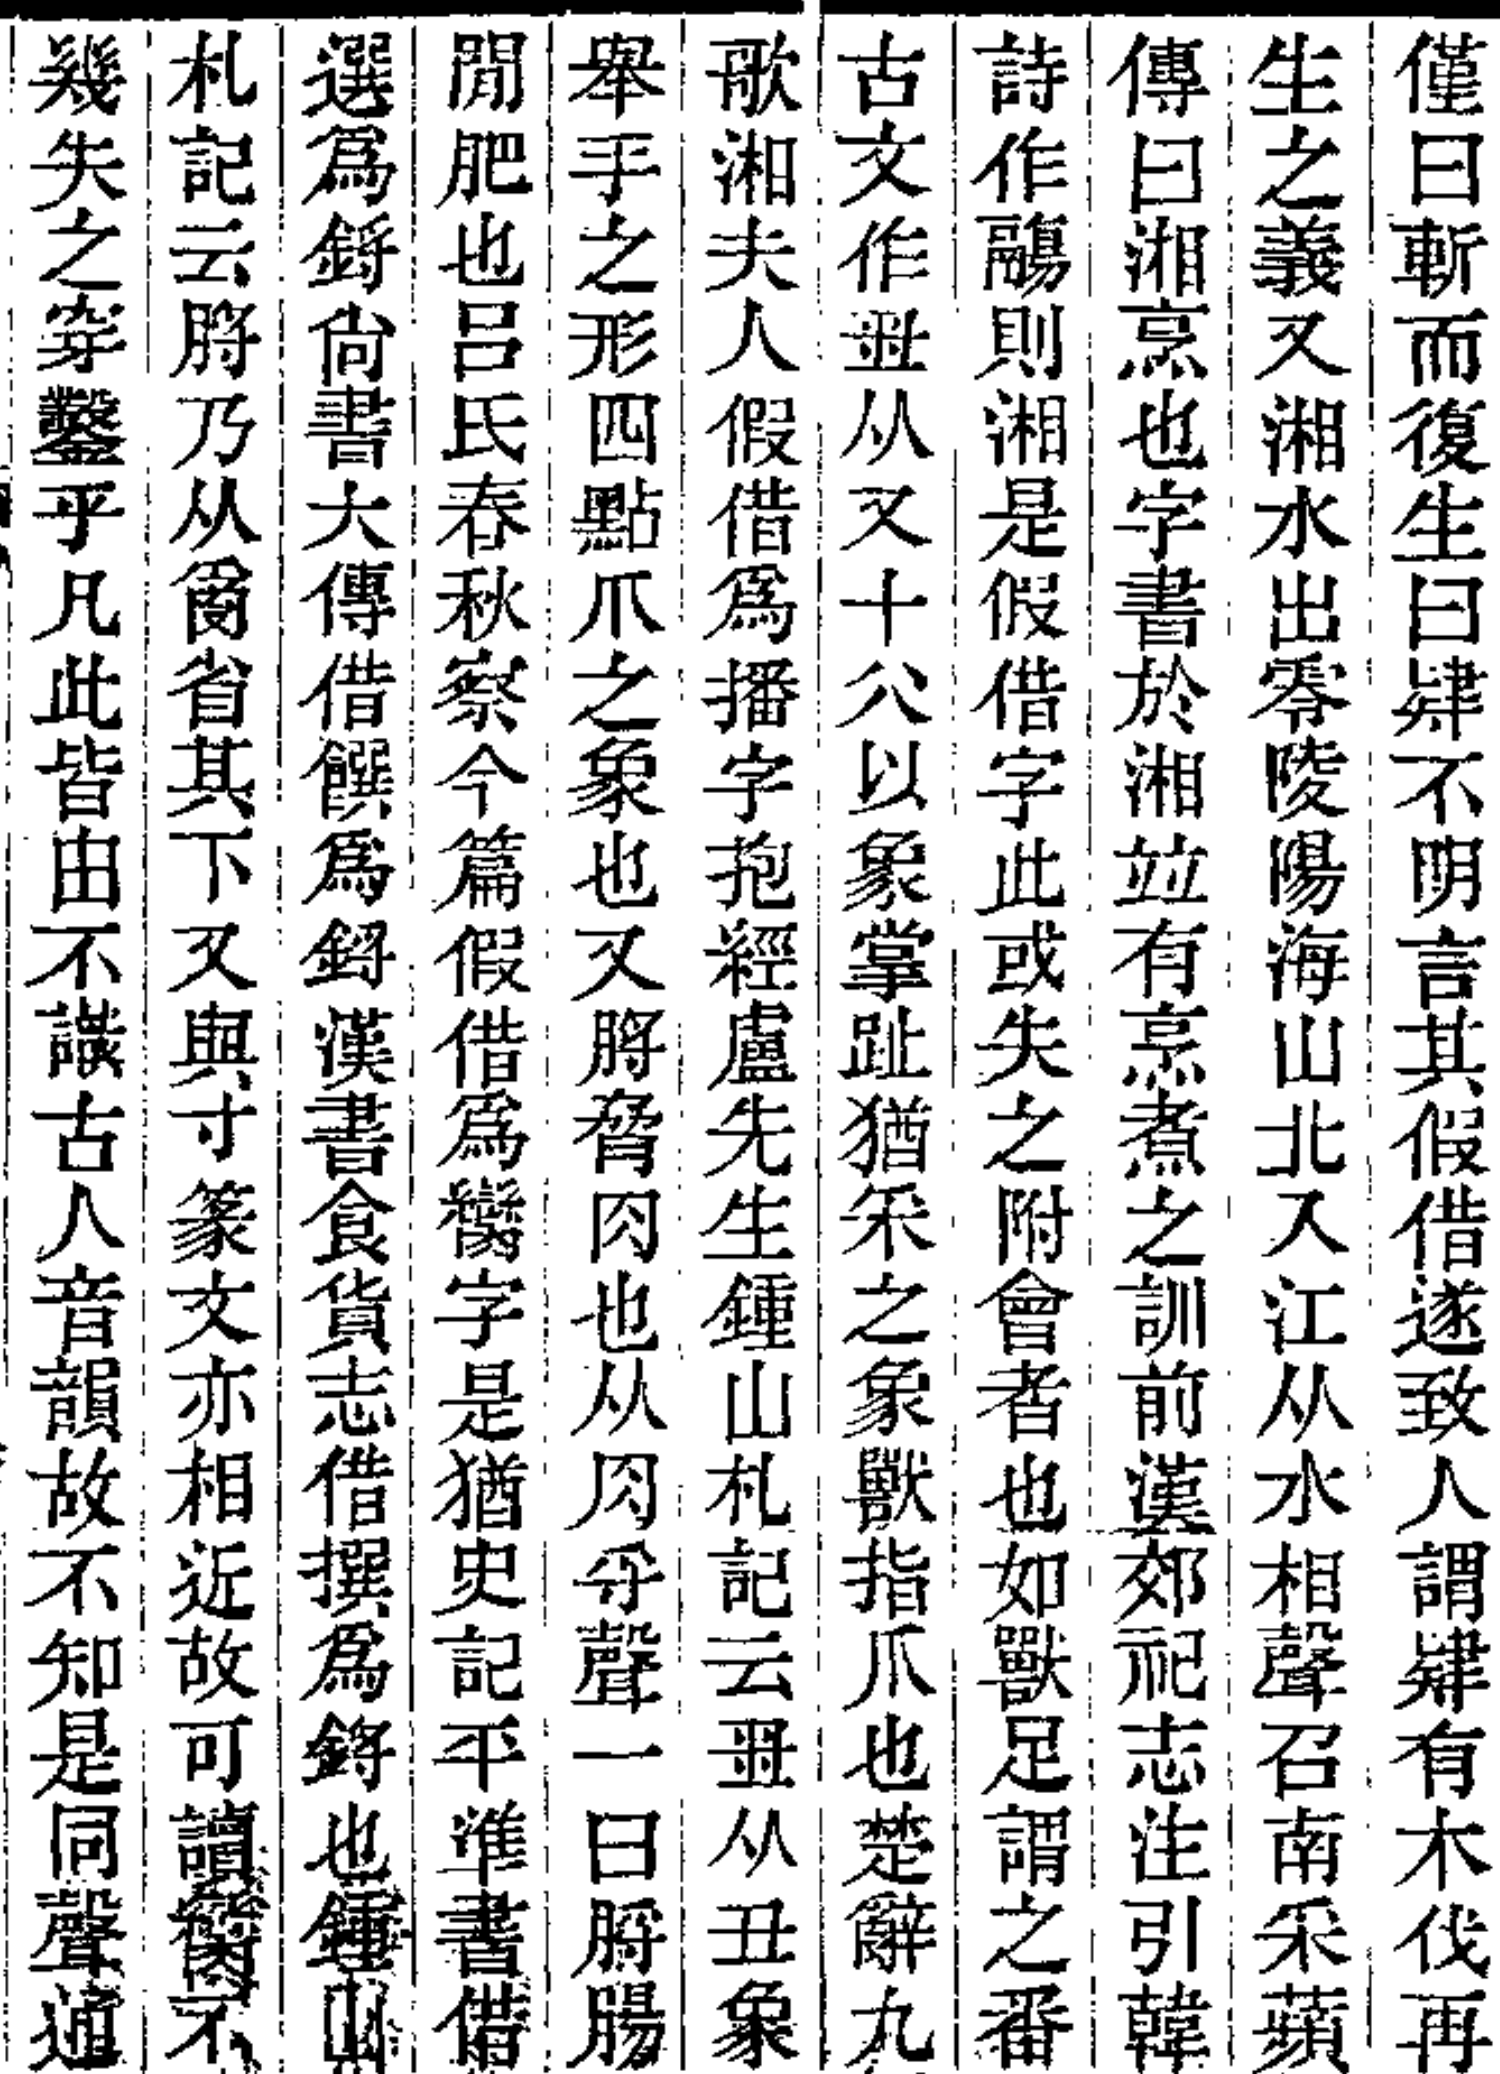 僅曰斬而復生曰肄不明言其假借遂致人謂肄有木伐再
生之義又湘水出零陵陽海山北入江从水相聲召南采蘋
傳曰湘烹也字書於湘並有烹煮之訓前漢郊祀志注引韓
詩作鬺則湘是假借字此或失之附會者也如獸足謂之番
古文作𠁥从又十八以象掌趾猶釆之象獸指爪也楚辭九
歌湘夫人假借爲播字抱經盧先生鍾山札記云𠁥从丑象
舉手之形四點爪之象也又脟脅肉也从肉寽聲一曰脟腸
閒肥也呂氏春秋察今篇假借爲臠字是猶史記平準書借
選爲鋝尙書大傳借饌爲鋝漢書食貨志借撰爲鋝也鍾山
札記云脟乃从𤔔省其下又與寸篆文亦相近故可讀臠不
幾失之穿鑿乎凡此皆由不識古人音韻故不知是同聲通